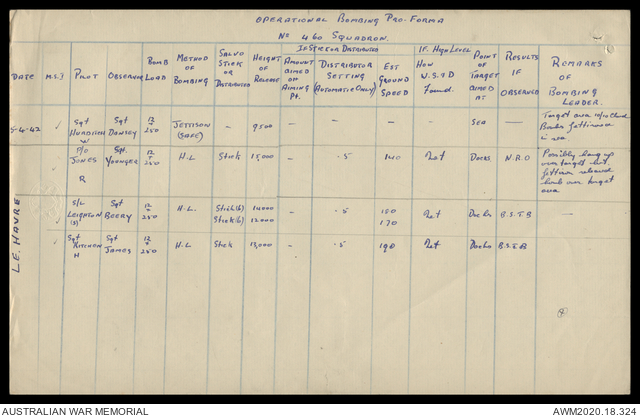 OPERATIONAL BOMBING PRO-FORMA
No 460 SQUADRON.
DATE M.S.I PILOT OBSERVER BOMB LOAD METHOD OF BOMBING SALVO STICK OR DISTRIBUTED HEIGHT OF RELEASE IF STICK OR DISTRIBUTED AMOUNT AIMED ON AIMING Pt. DISTRIBUTOR SETTING (AUTOMATIC ONLY) EST GROUND SPEED IF HIGH LEVEL HOW W.S & D Found. POINT OF TARGET AIMED AT RESULTS IF OBSERVED REMARKS OF BOMBING LEADER.
5-4-42 ✓ Sgt Sgt DONSEY 12 + 250 JETTISON (SAFE) — 9500 – – – – SEA — Target area 10/10 cloud Bombs Jettisoned in sea.
✓ P/O JONES R Sgt. YOUNGER 12 + 250 H.L Stick 15,000 – .5 140 Net Docks N.R.O Possibly hang up over target but jettison released bomb over target area
LE HAVRE
✓ S/L LEIGHTON (S) Sgt BEERY 12 + 250 H.L. Stick(6) 14000 – .5 180 Net Docks B.S.T.B —
Stick(6) 12000 170
✓ Sgt KITCHEN H Sgt JAMES 12 + 250 H.L Stick 13,000 – .5 190 Net Docks B.S.T.B
AUSTRALIAN WAR MEMORIAL
AWM2020.18.324